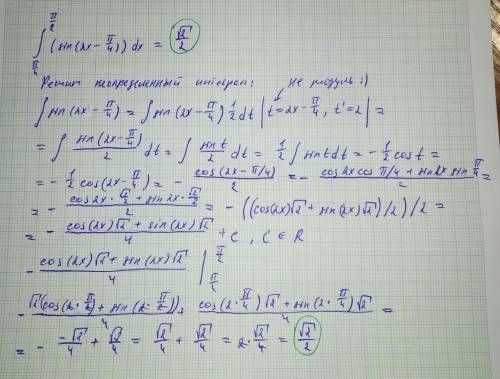 ∫_{π/4}^{π/2} (sin(2x − π/4)) dx = √2/2
Решит неопределенный интеграл: не модуль :)
∫ sin(2x − π/4) = ∫ sin(2x − π/4) 1/2 dt | t = 2x − π/4, t' = 2 | =
= ∫ sin(2x − π/4)/2 dt = ∫ sin t/2 dt = 1/2 ∫ sin t dt = − 1/2 cos t =
= − 1/2 cos(2x − π/4) = − cos(2x − π/4)/2 = − cos 2x cos π/4 + sin 2x sin π/4/2 =
= − cos 2x · √2/2 + sin 2x · √2/2/2 = − ((cos(2x)√2 + sin(2x)√2)/2)/2 =
= − cos(2x)√2 + sin(2x)√2/4 + C, C ∈ R
− cos(2x)√2 + sin(2x)√2/4 |_{π/4}^{π/2}
− √2(cos(2·π/2) + sin(2·π/2))/4 + cos(2·π/4)√2 + sin(2·π/4)√2/4 =
= − −√2/4 + √2/4 = √2/4 + √2/4 = 2·√2/4 = √2/2